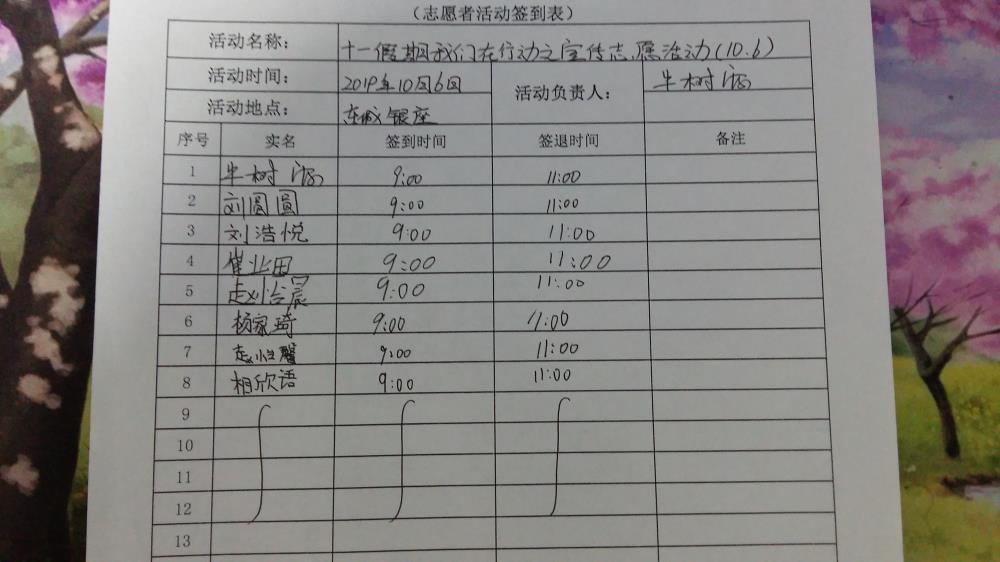 （志愿者活动签到表）
活动名称： 十一假期我们在行动之宣传志愿活动（10.6）
活动时间： 2019年10月6日 活动负责人： 牛树
活动地点： 东城银座
序号 实名 签到时间 签退时间 备注
1 牛树 9:00 11:00
2 刘圆圆 9:00 11:00
3 刘浩悦 9:00 11:00
4 崔业田 9:00 11:00
5 赵怡晨 9:00 11:00
6 杨家琦 9:00 11:00
7 赵馨 9:00 11:00
8 相欣语 9:00 11:00
9
10
11
12
13